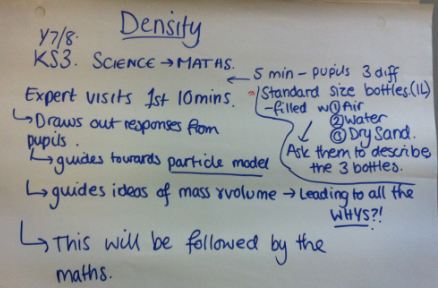 Density
Y7/8.
KS3. SCIENCE → MATHS.
Expert visits 1st 10mins.
↳ Draws out responses from
pupils.
↳ guides towards particle model
↳ guides ideas of mass & volume → Leading to all the
WHYS?!
↳ This will be followed by the
maths.
← 5 min - pupils 3 diff
Standard size bottles (1L)
-filled w ① Air
② Water
③ Dry Sand.
Ask them to describe
the 3 bottles.